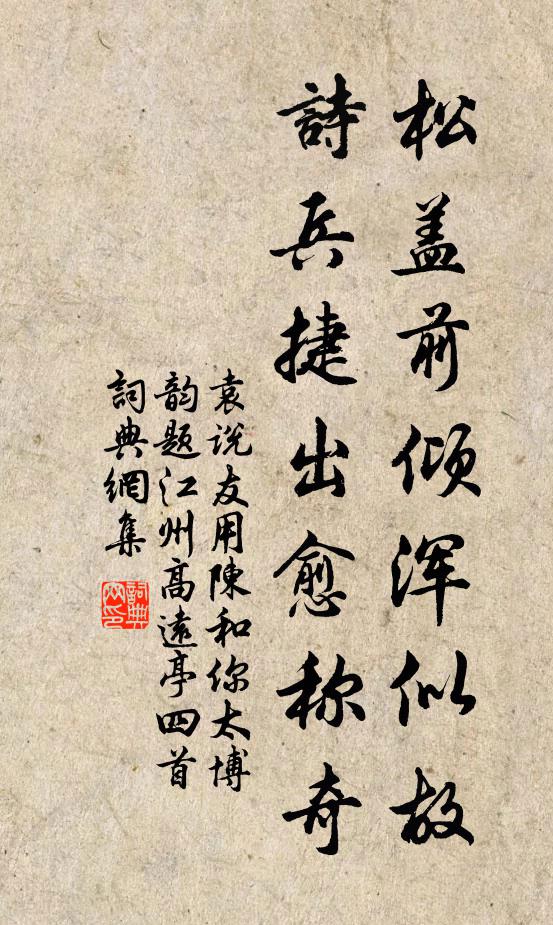 松盖前倾浑似故
詩兵捷出愈称奇
袁说友用陳和你太博
韵题江州高遠亭四首
詞典網集
詞典網印